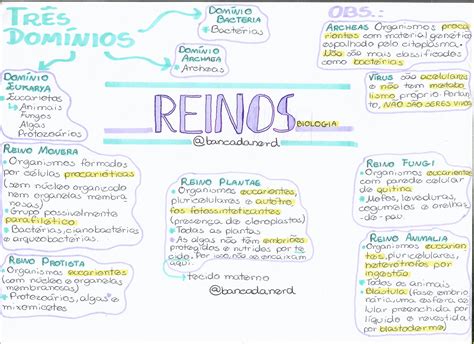 TRÊS
DOMÍNIOS
DOMÍNIO
BACTERIA
Bactérias
DOMÍNIO
ARCHAEA
Archeas
DOMÍNIO
EUKARYA
Eucariotos
Animais
Fungos
Algas
Protozoários
OBS.:
ARCHEAS Organismos proca
riontes com material genético
espalhado pelo citoplasma.
Não são mais classificados
como bactérias
VÍRUS São acelulares
e não tem metabo
lismo próprio. Portan
to, NÃO SÃO SERES VIVOS
REINOS
BIOLOGIA
@bancadanerd
REINO MONERA
Organismos formados
por células procarióticas
(sem núcleo organizado
nem organelas membra
nosas)
Grupo possivelmente
parafilético
Bactérias, cianobactérias
e arqueobactérias.
REINO PROTISTA
Organismos eucariontes
(com núcleo e organelas
membranosas)
Protozoários, algas e
mixomicetos
REINO PLANTAE
Organismos eucariontes,
pluricelulares e autótro
fos fotossintetizantes
(presença de cloroplastos)
Todas as plantas
As algas não tem embriões
protegidos e nutridos por te
cido. Por isso, não se encaixam
aqui.
tecido materno
@bancadanerd
REINO FUNGI
Organismos eucariontes
com parede celular
de quitina
Mofos, leveduras,
cogumelos e orelhas
de-pau.
REINO ANIMALIA
Organismos eucarion
tes, pluricelulares,
heterótrofos por
ingestão
Todos os animais
Blástula (fase embrio
nária, uma esfera ce
lular preenchida por
líquido e revestida
por blastoderme)